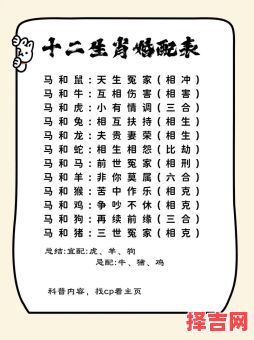 十二生肖婚配表
马和鼠:天生冤家(相冲)
马和牛:互相伤害(相害)
马和虎:小有情调(三合)
马和兔:相互扶持(相生)
马和龙:夫贵妻荣(相生)
马和蛇:相生相怨(比劫)
马和马:前世冤家(相刑)
马和羊:非你莫属(六合)
马和猴:苦中作乐(相克)
马和鸡:争吵不休(相克)
马和狗:再续前缘(三合)
马和猪:三世冤家(相克)
总结:宜配:虎、羊、狗
忌配:牛、猪、鸡
科普内容,找cp看主页
择吉网